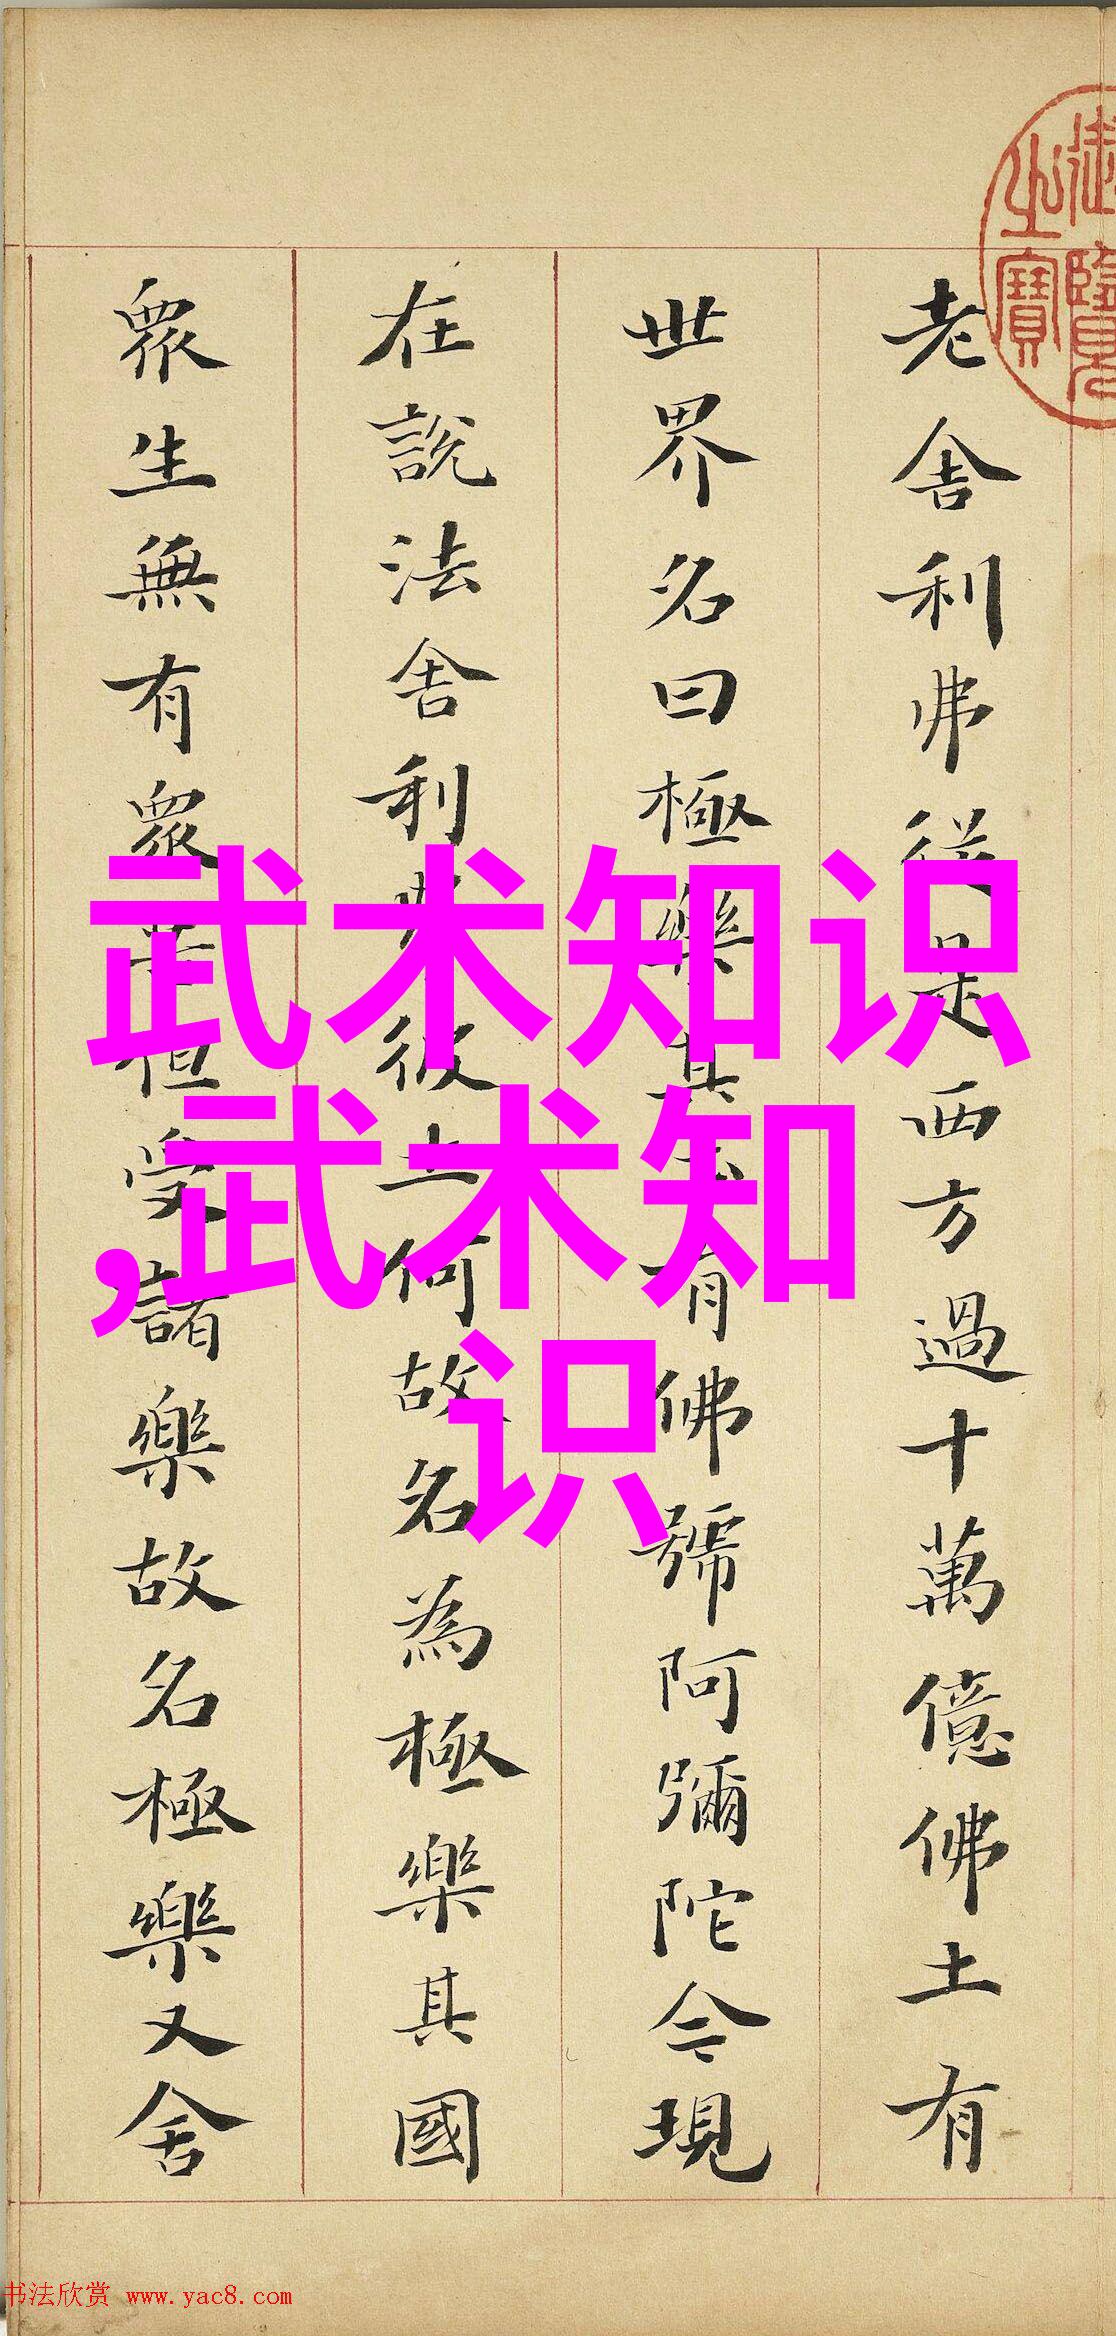 御覽
之寶
老舍利弗從是西方過十萬億佛土有
世界名曰極樂其土有佛號阿彌陀今現
在說法舍利弗彼土何故名為極樂其國
衆生無有衆苦恒受諸樂故名極樂又舍
武术知识
,武术知
识
书法欣赏 www.yac8.com